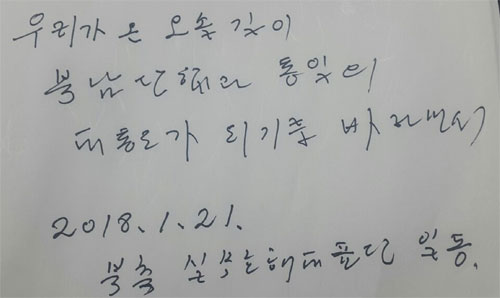 우리가 온 오솔길이
북남단합과 통일의
대통로가 되기를 바라면서
2018. 1. 21.
북측 실무 대표단 일동.